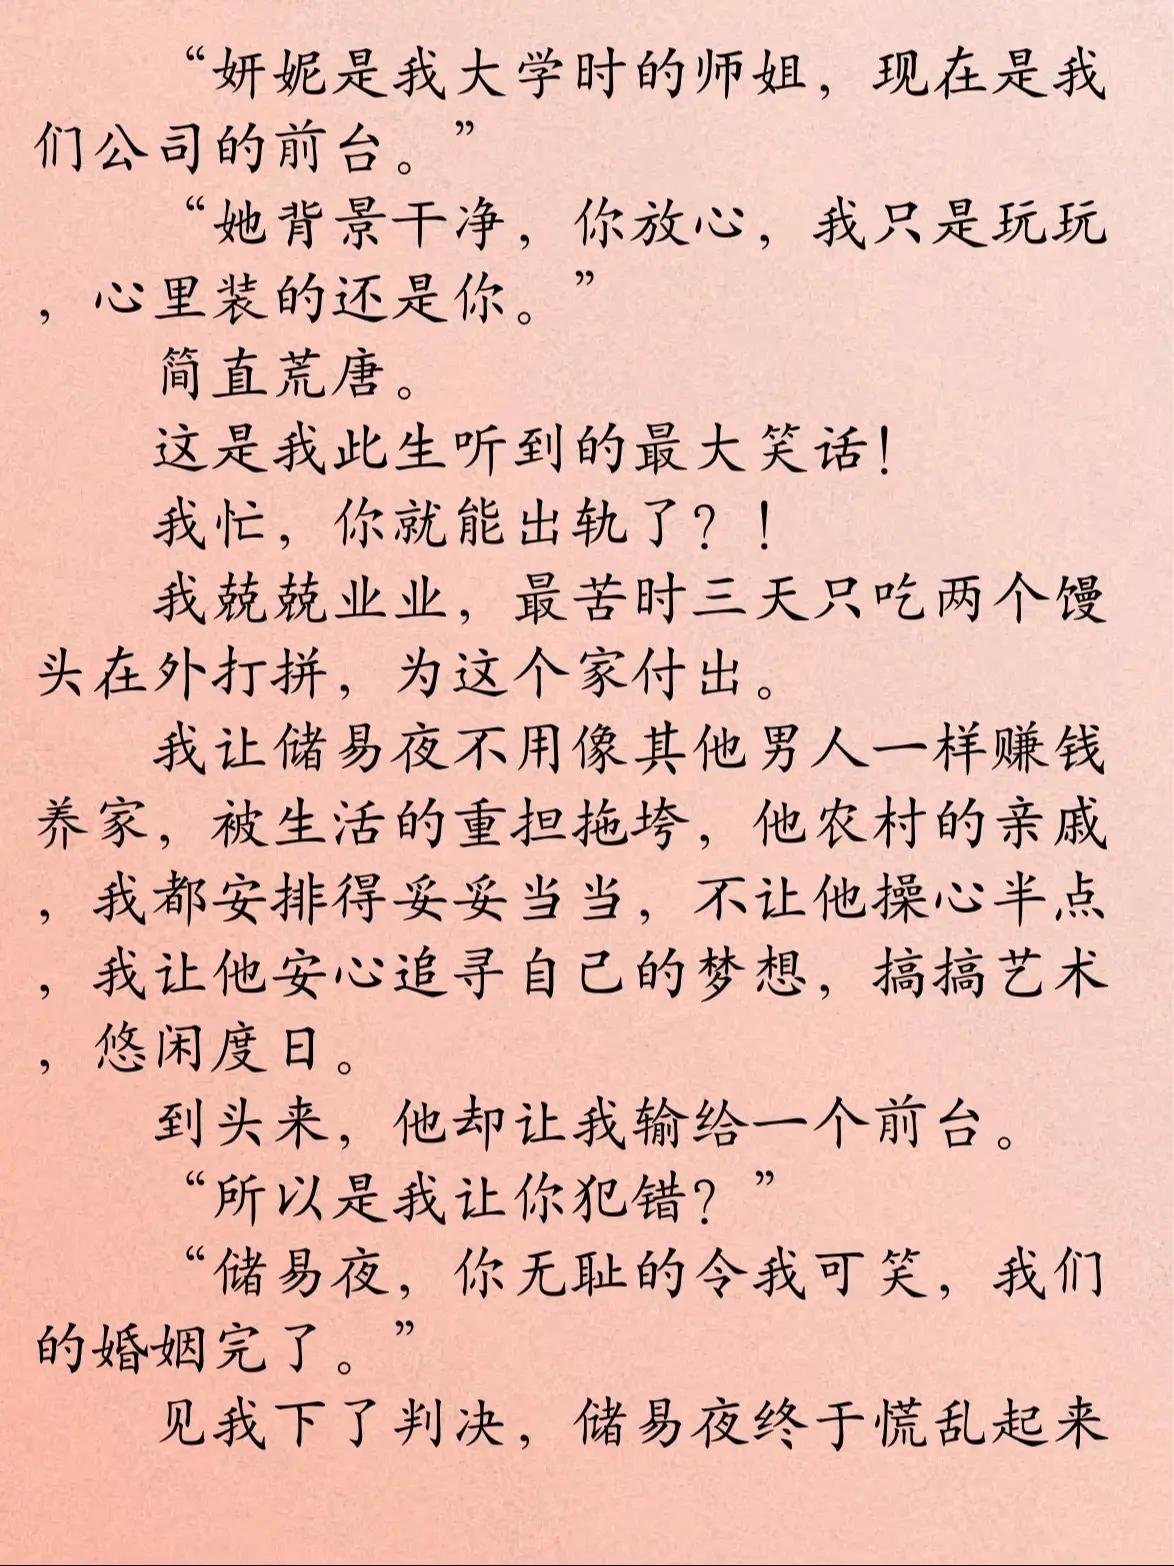 “妍妮是我大学时的师姐，现在是我
们公司的前台。”
“她背景干净，你放心，我只是玩玩
，心里装的还是你。”
简直荒唐。
这是我此生听到的最大笑话！
我忙，你就能出轨了？！
我兢兢业业，最苦时三天只吃两个馒
头在外打拼，为这个家付出。
我让储易夜不用像其他男人一样赚钱
养家，被生活的重担拖垮，他农村的亲戚
，我都安排得妥妥当当，不让他操心半点
，我让他安心追寻自己的梦想，搞搞艺术
，悠闲度日。
到头来，他却让我输给一个前台。
“所以是我让你犯错？”
“储易夜，你无耻的令我可笑，我们
的婚姻完了。”
见我下了判决，储易夜终于慌乱起来